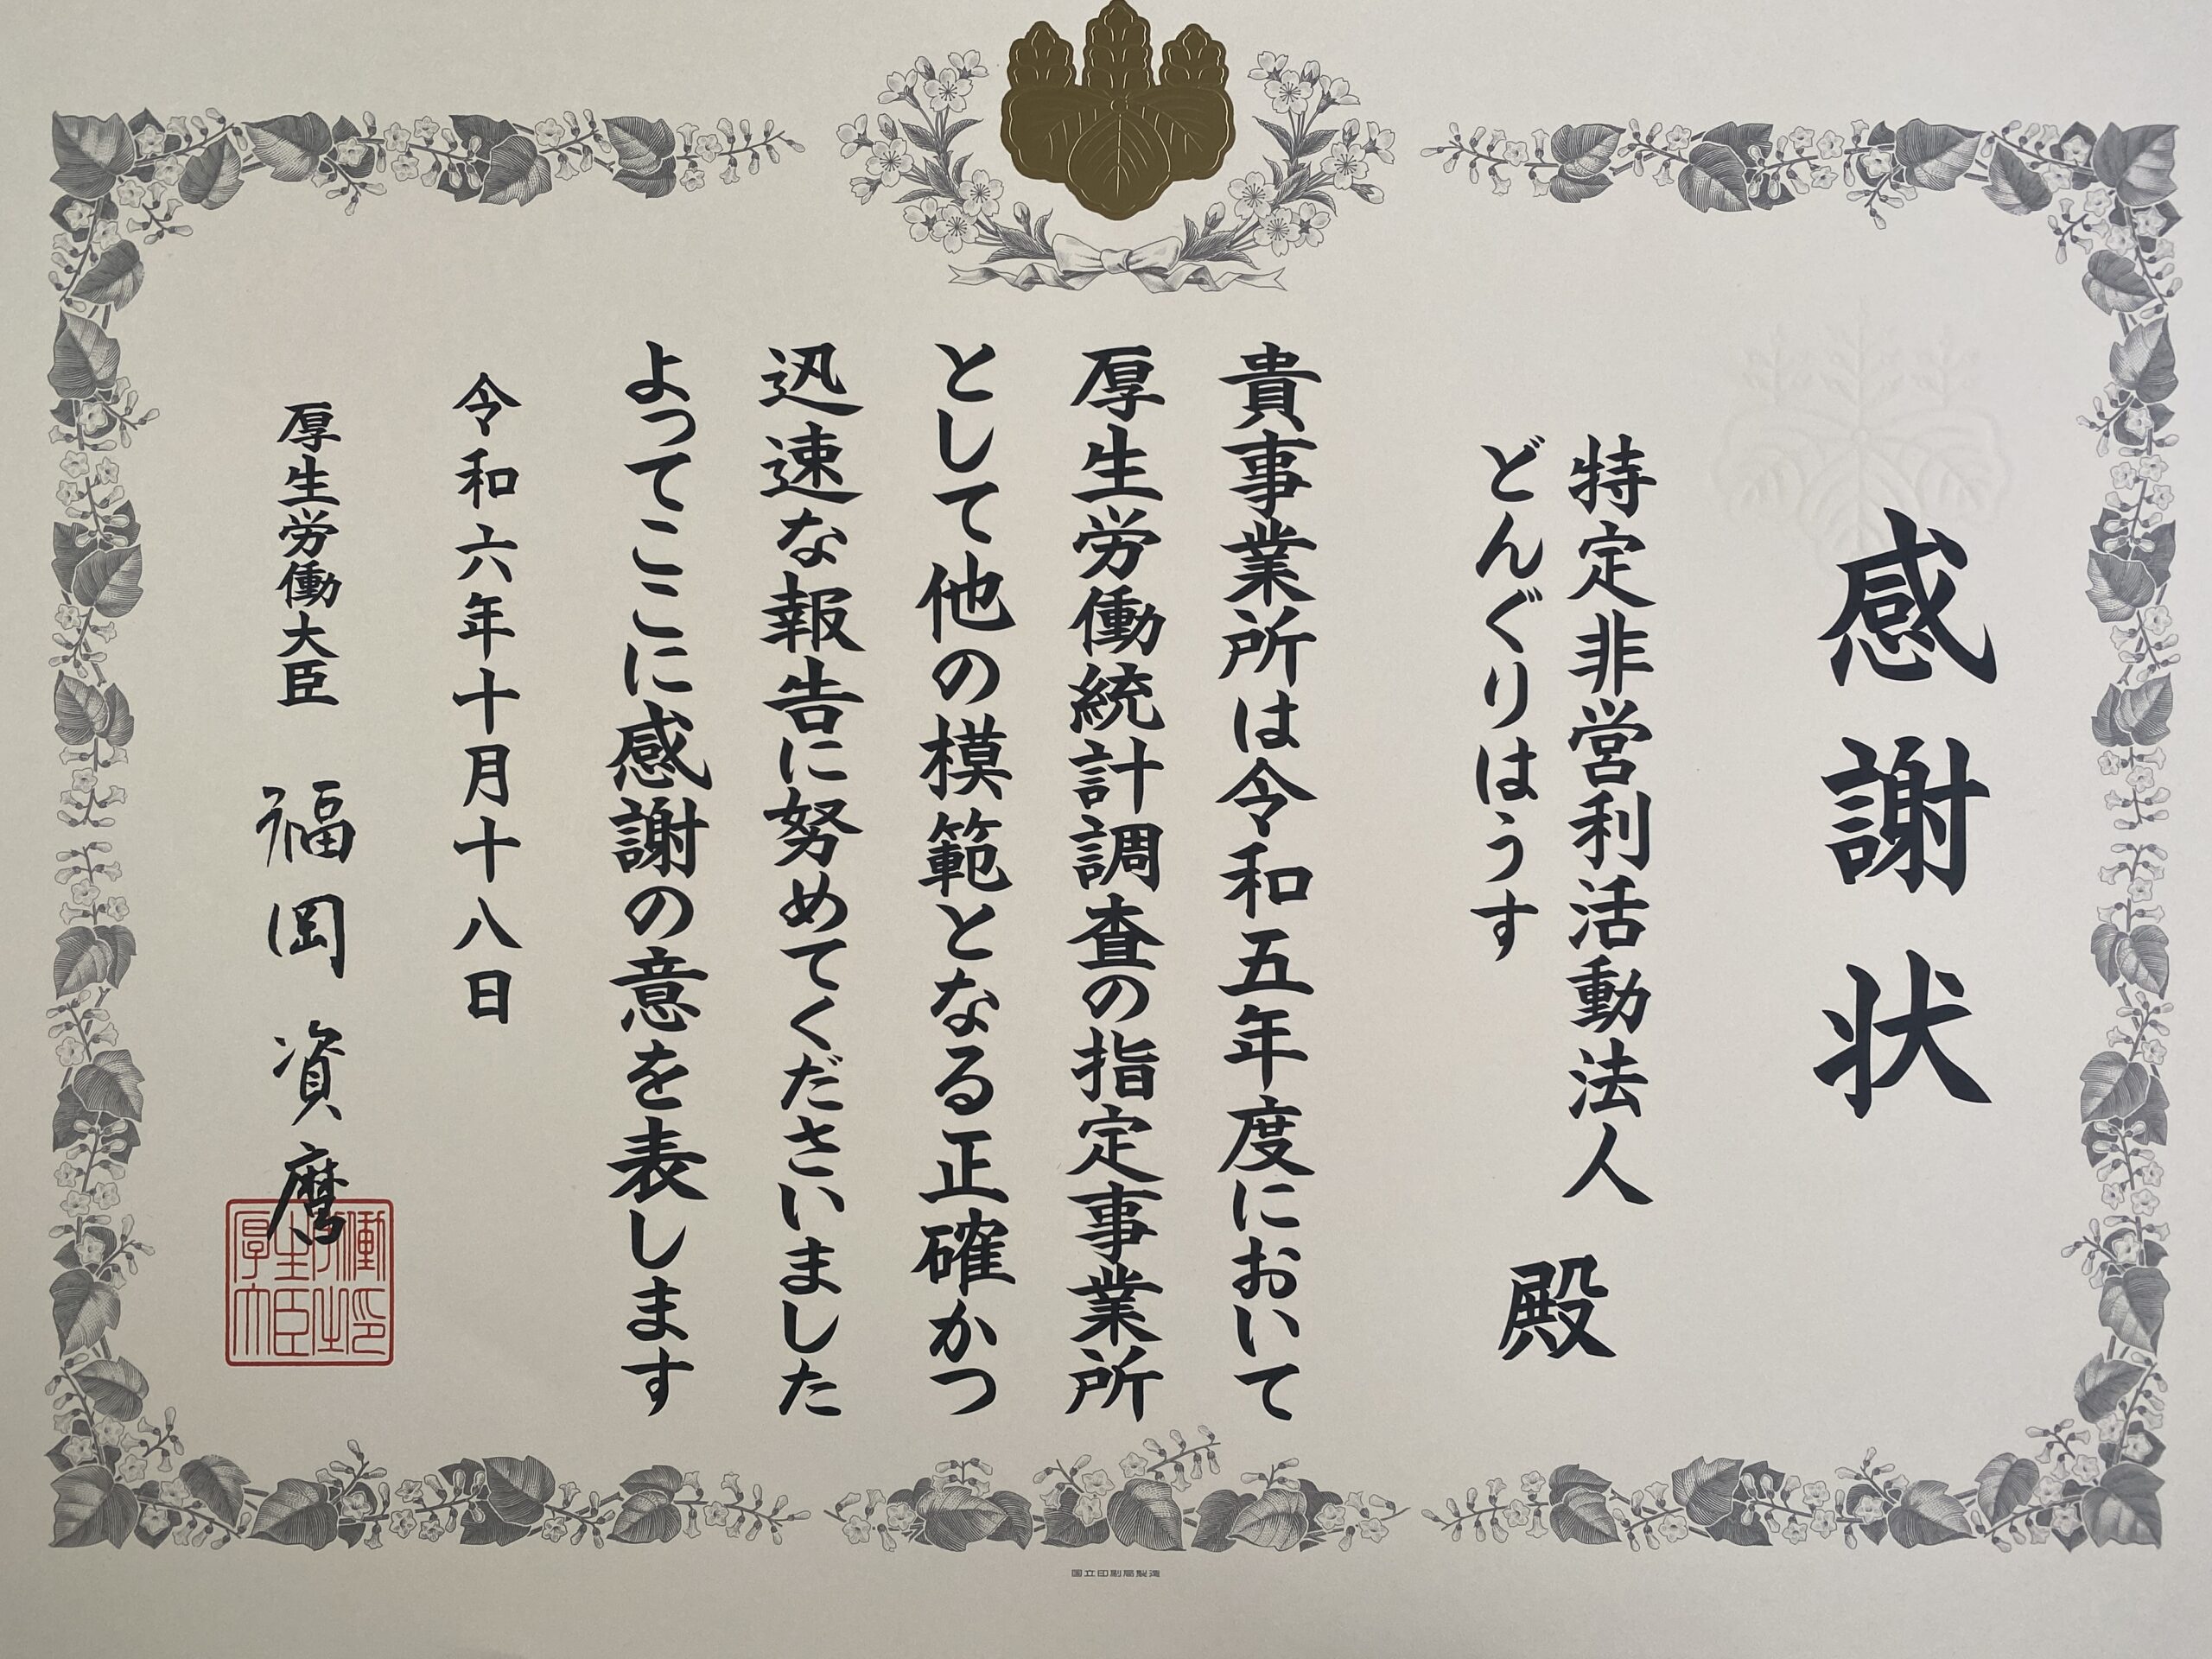 感謝状
特定非営利活動法人
どんぐりはうす
殿
貴事業所は令和五年度において
厚生労働統計調査の指定事業所
として他の模範となる正確かつ
迅速な報告に努めてくださいました
よってここに感謝の意を表します
令和六年十月十八日
厚生労働大臣 福岡資麿
国立印刷局製造